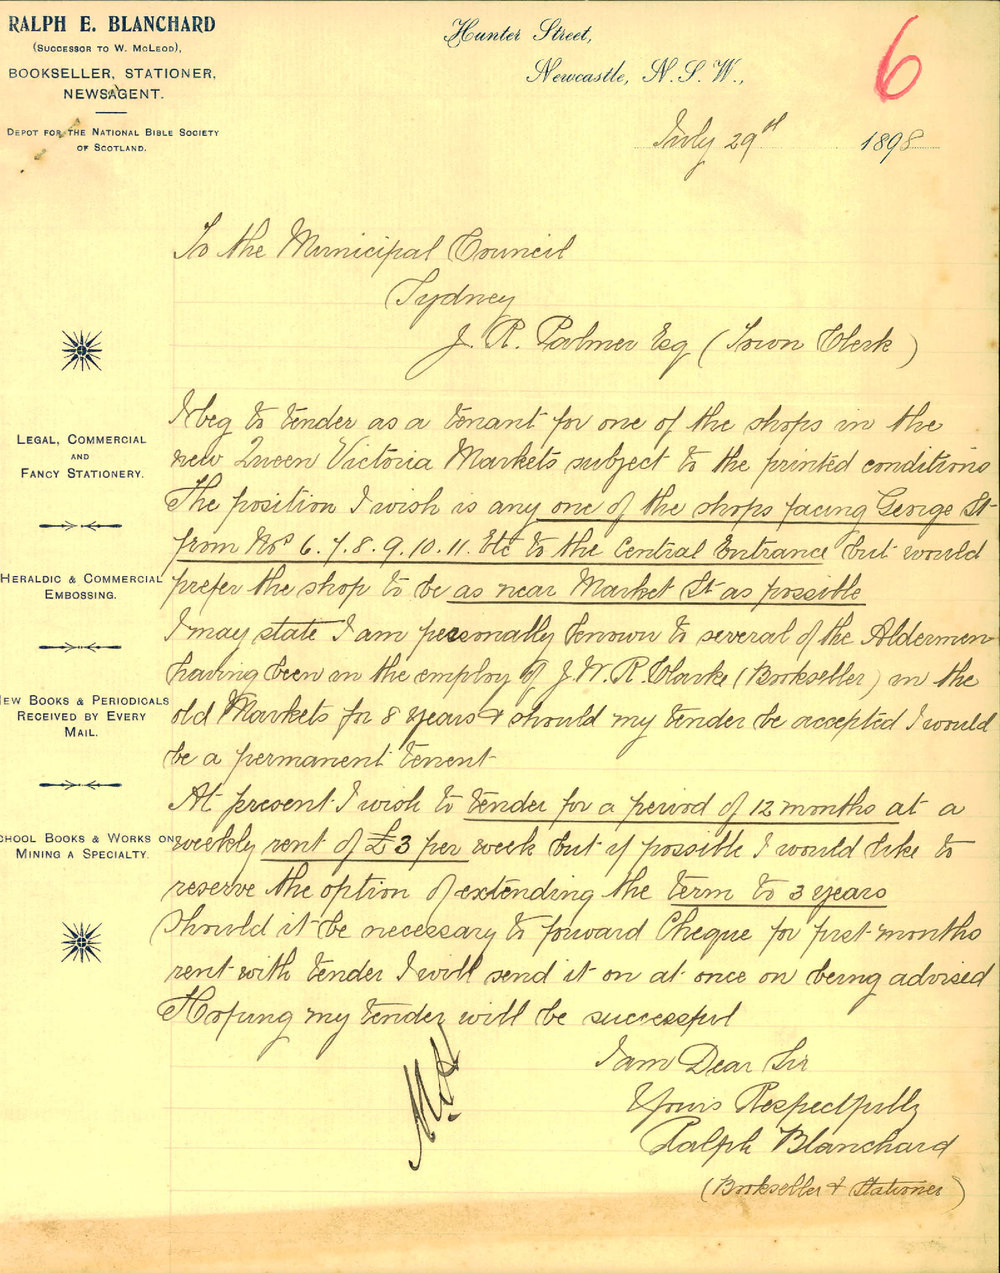 RALPH E. BLANCHARD
(SUCCESSOR TO W. MCLEOD),
BOOKSELLER, STATIONER,
NEWSAGENT.
DEPOT FOR THE NATIONAL BIBLE SOCIETY
OF SCOTLAND.
Hunter Street,
Newcastle, N.S.W.,
6
July 29th 1898
To the Municipal Council
Sydney
J. R. Palmer Esq (Town Clerk)
I beg to tender as a tenant for one of the shops in the
new Queen Victoria Markets subject to the printed conditions
The position I wish is any one of the shops facing George St
from Nos 6.7.8.9.10.11. Etc to the Central Entrance but would
prefer the shop to be as near Market St as possible
I may state I am personally known to several of the Aldermen
having been in the employ of J. W. R. Clarke (Bookseller) in the
old Markets for 8 years & should my tender be accepted I would
be a permanent tenent
At present I wish to tender for a period of 12 months at a
weekly rent of £3 per week but if possible I would like to
reserve the option of extending the term to 3 years
Should it be necessary to forward Cheque for first months
rent with tender I will send it on at once on being advised
Hoping my tender will be successful
I am Dear Sir
Yours Respectfully
Ralph Blanchard
(Bookseller & Stationer)
LEGAL, COMMERCIAL
AND
FANCY STATIONERY.
HERALDIC & COMMERCIAL
EMBOSSING.
NEW BOOKS & PERIODICALS
RECEIVED BY EVERY
MAIL.
SCHOOL BOOKS & WORKS ON
MINING A SPECIALTY.